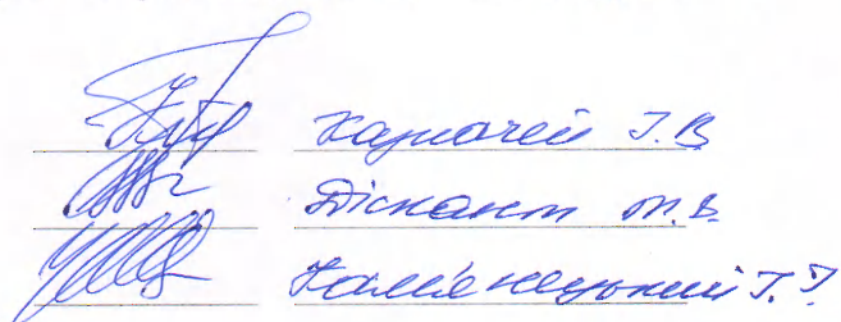 Казначей І.В
Діскант Т.В.
Кам'янецький Т.Т.